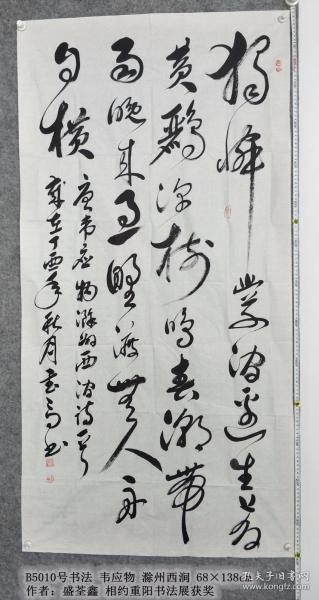 獨憐幽草澗邊生上有
黄鸝深樹鳴春潮帶
雨晚来急野渡無人舟
自横
唐韦应物滁州西涧诗一首
歲在丁酉年秋月書
B5010号书法 韦应物 滁州西涧 68×138cm
作者：盛荃鑫 相约重阳书法展获奖
孔夫子旧书网